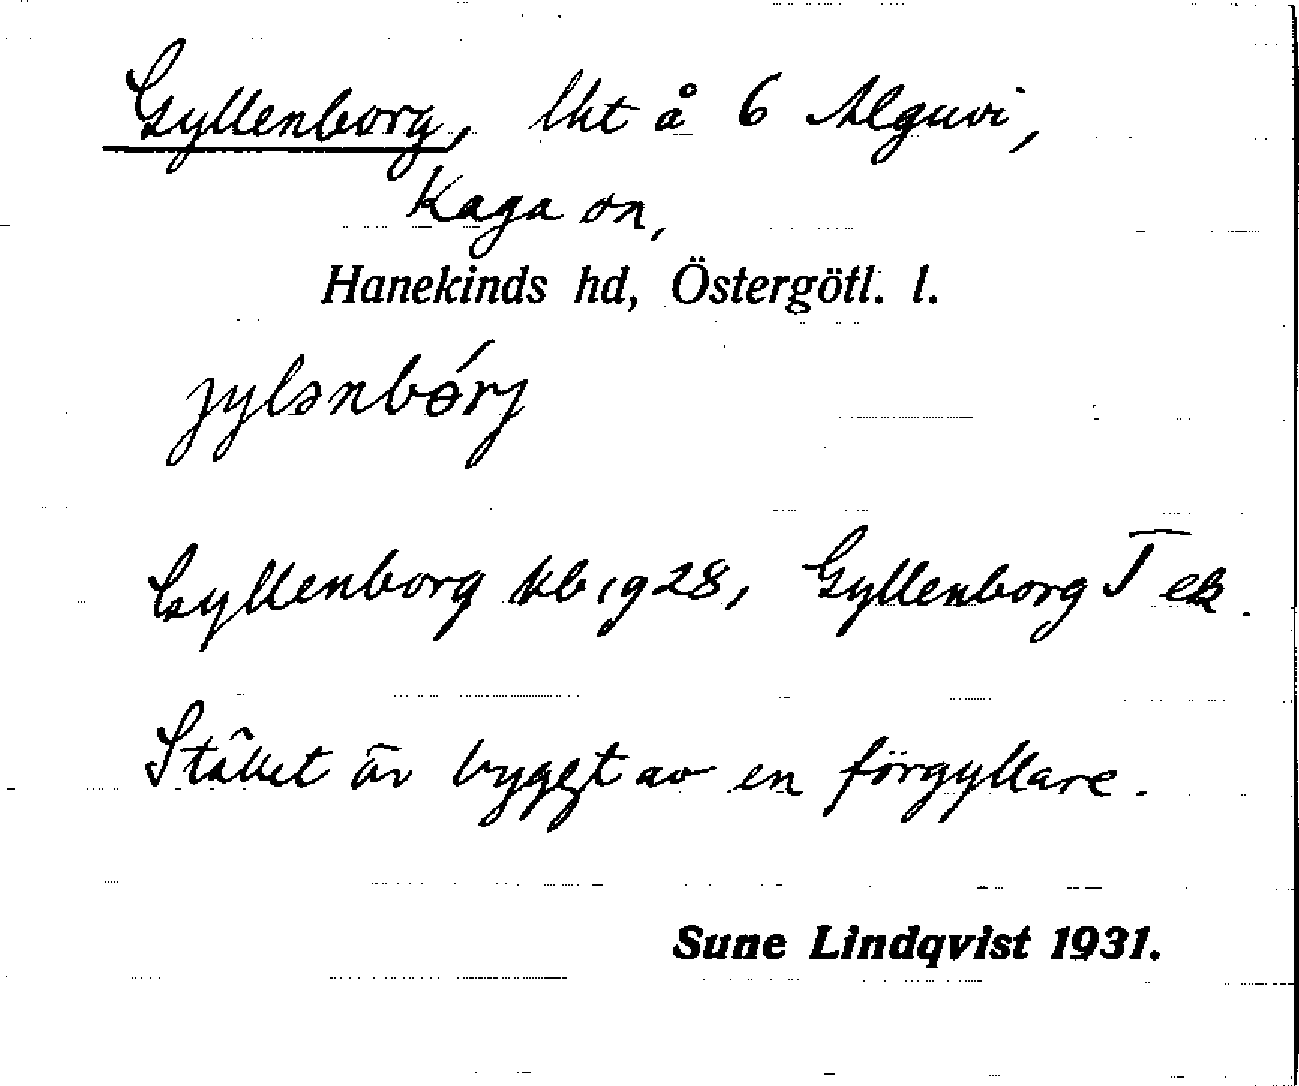 Gyllenborg, lht å 6 Alguvi,
Kaga sn,
Hanekinds hd, Östergötl. l.
jylənbórj
Gyllenborg kb 1928, Gyllenborg J ek.
Stället är byggt av en förgyllare.
Sune Lindqvist 1931.